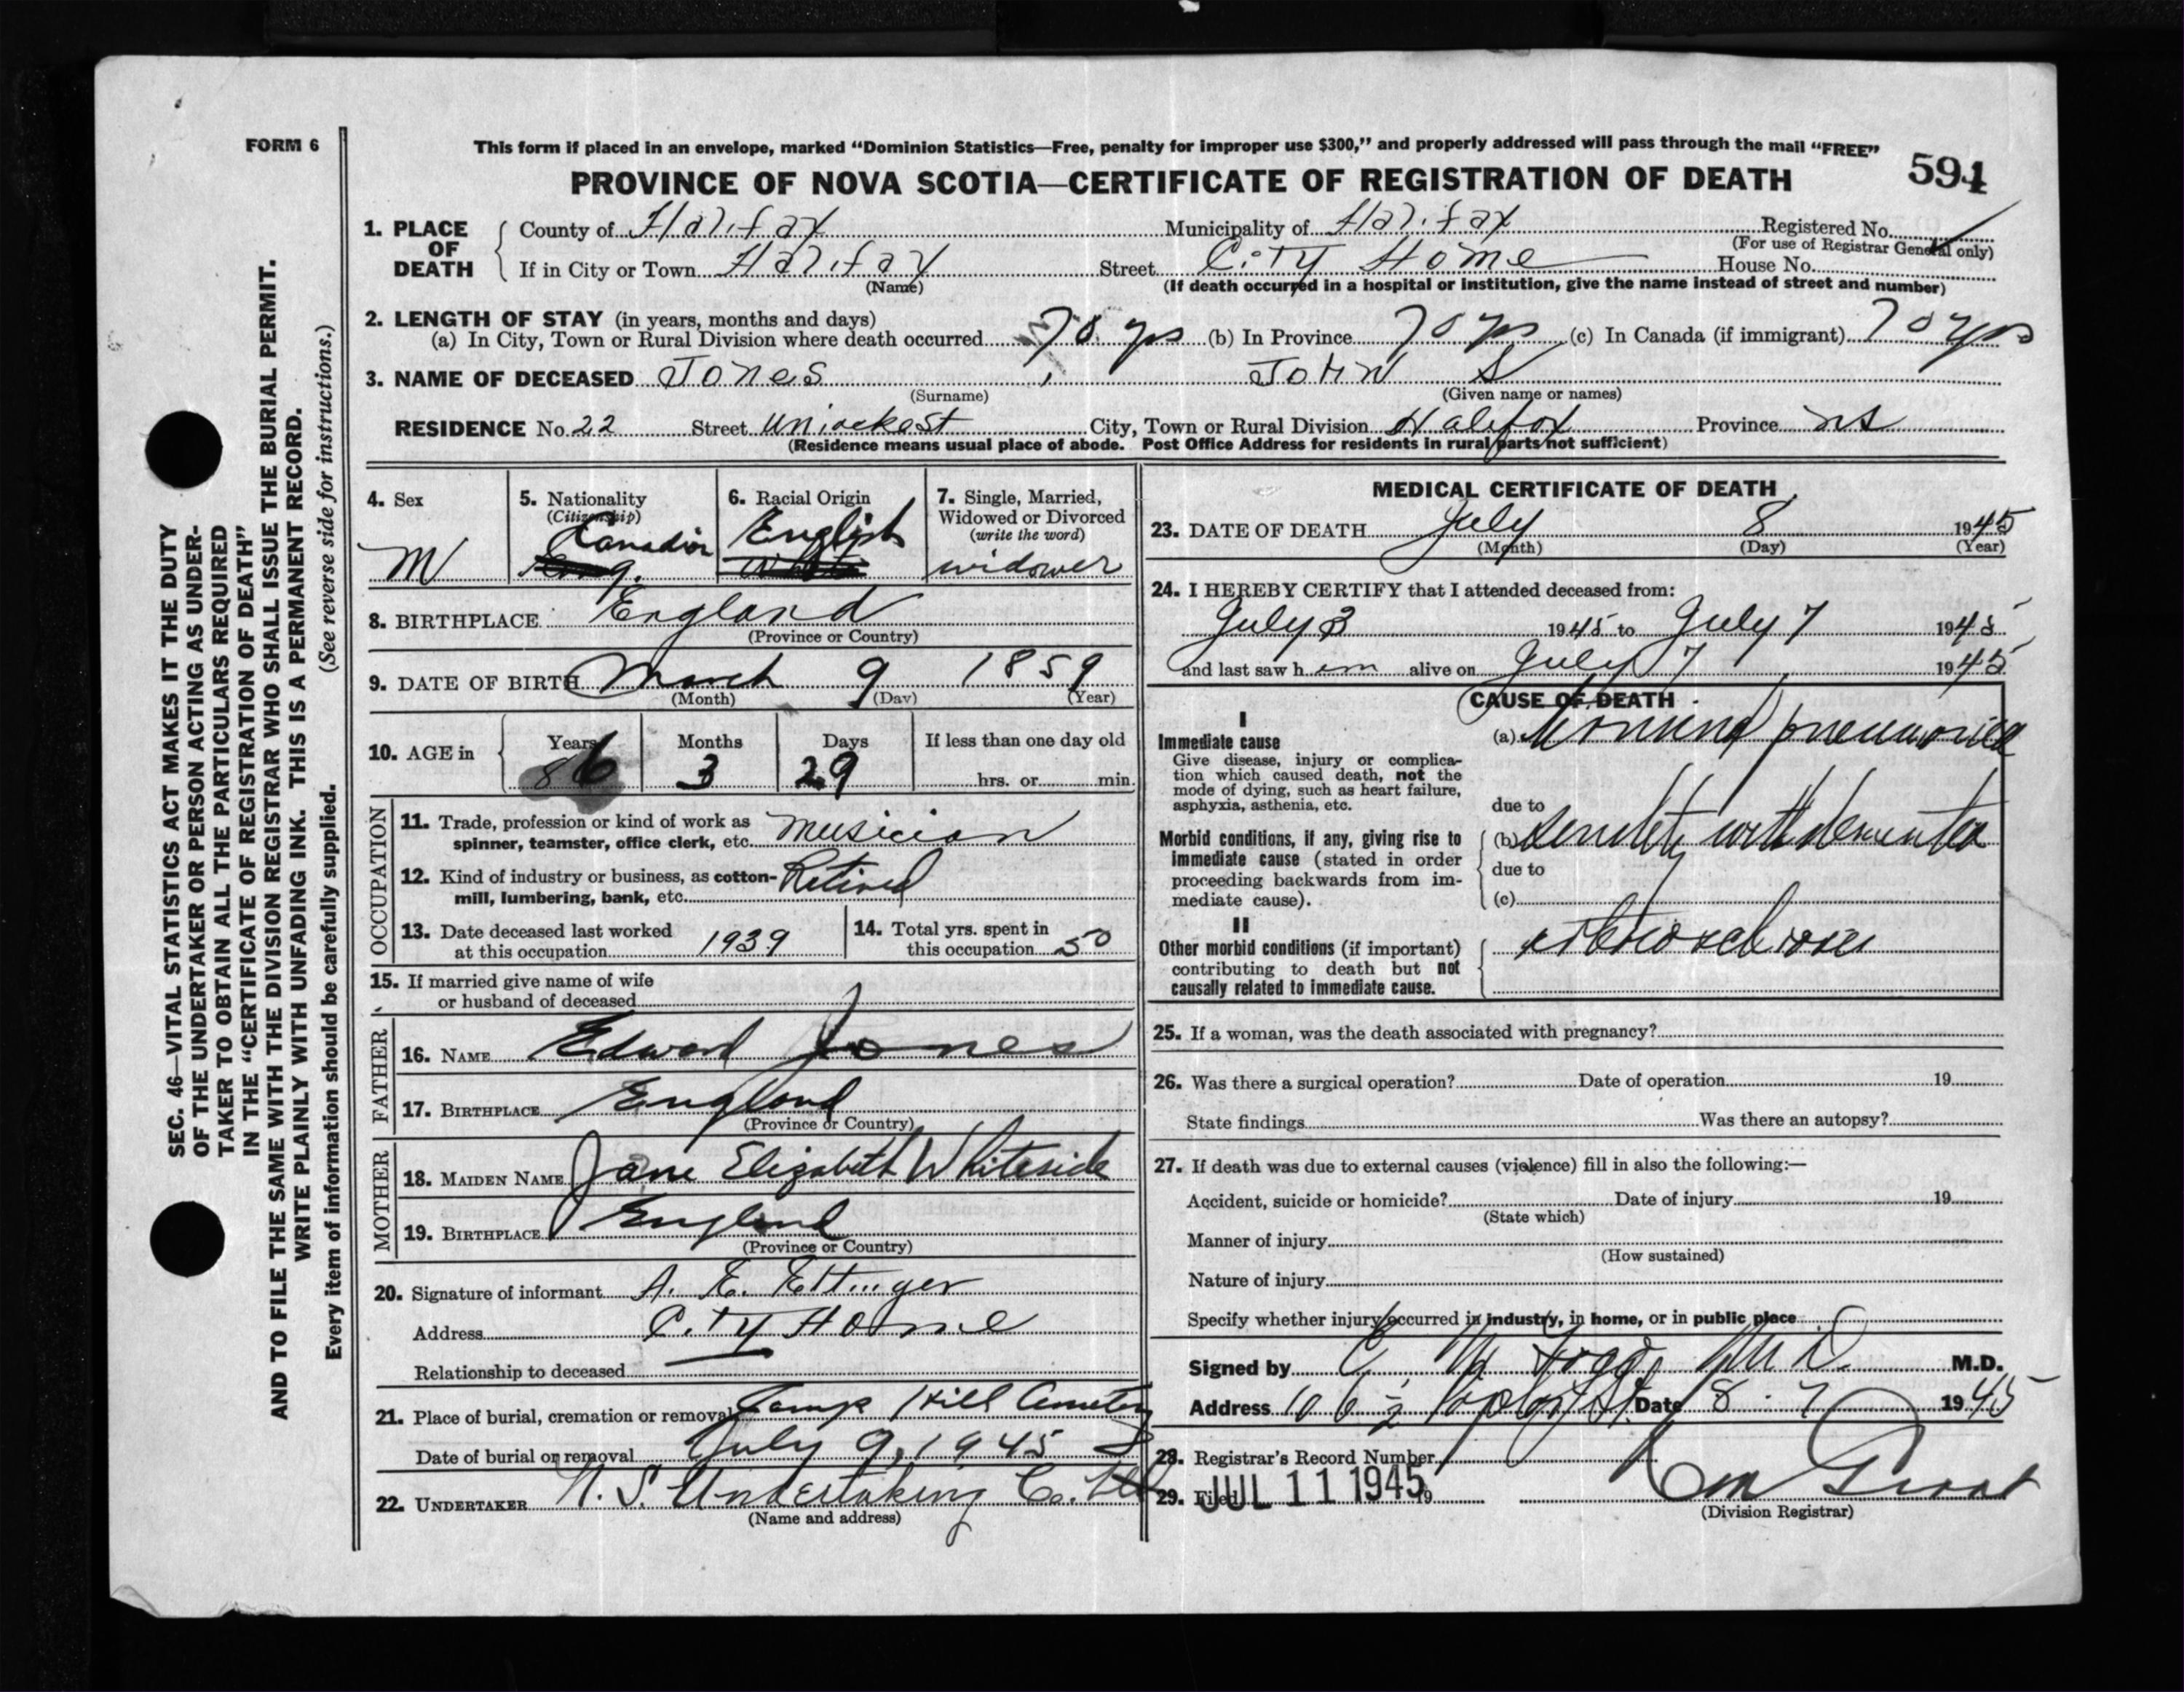 FORM 6
This form if placed in an envelope, marked “Dominion Statistics—Free, penalty for improper use $300,” and properly addressed will pass through the mail “FREE”
594
PROVINCE OF NOVA SCOTIA—CERTIFICATE OF REGISTRATION OF DEATH
1. PLACE OF DEATH
County of Halifax Municipality of Halifax Registered No.
(For use of Registrar General only)
If in City or Town Halifax Street City Home House No.
(Name) (If death occurred in a hospital or institution, give the name instead of street and number)
2. LENGTH OF STAY (in years, months and days)
(a) In City, Town or Rural Division where death occurred 70 yrs (b) In Province 70 yrs (c) In Canada (if immigrant) 70 yrs
3. NAME OF DECEASED Jones, John S
(Surname) (Given name or names)
RESIDENCE No. 22 Street Uniacke St City, Town or Rural Division Halifax Province NS
(Residence means usual place of abode. Post Office Address for residents in rural parts not sufficient)
4. Sex
M
5. Nationality
(Citizenship)
Canadian
6. Racial Origin
English
White
7. Single, Married,
Widowed or Divorced
(write the word)
widower
8. BIRTHPLACE England
(Province or Country)
9. DATE OF BIRTH March 9 1859
(Month) (Day) (Year)
10. AGE in
Years Months Days If less than one day old
86 3 29 hrs. or min.
OCCUPATION
11. Trade, profession or kind of work as
spinner, teamster, office clerk, etc. Musician
12. Kind of industry or business, as cotton-
mill, lumbering, bank, etc. Retired
13. Date deceased last worked
at this occupation 1939
14. Total yrs. spent in
this occupation 50
15. If married give name of wife
or husband of deceased
FATHER
16. NAME Edward Jones
17. BIRTHPLACE England
(Province or Country)
MOTHER
18. MAIDEN NAME Jane Elizabeth Whiteside
19. BIRTHPLACE England
(Province or Country)
20. Signature of informant A. E. Ettinger
Address City Home
Relationship to deceased
21. Place of burial, cremation or removal Camp Hill Cemetery
Date of burial or removal July 9, 1945
22. UNDERTAKER N. S. Undertaking Co. Ltd
(Name and address)
MEDICAL CERTIFICATE OF DEATH
23. DATE OF DEATH July 8 1945
(Month) (Day) (Year)
24. I HEREBY CERTIFY that I attended deceased from:
July 3 1945 to July 7 1945
and last saw him alive on July 7 1945
CAUSE OF DEATH
I
Immediate cause
Give disease, injury or complica-
tion which caused death, not the
mode of dying, such as heart failure,
asphyxia, asthenia, etc.
(a) pneumonia
due to
Morbid conditions, if any, giving rise to
immediate cause (stated in order
proceeding backwards from im-
mediate cause).
(b) senility with dementia
due to
(c)
II
Other morbid conditions (if important)
contributing to death but not
causally related to immediate cause.
arteriosclerosis
25. If a woman, was the death associated with pregnancy?
26. Was there a surgical operation? Date of operation 19
State findings Was there an autopsy?
27. If death was due to external causes (violence) fill in also the following:—
Accident, suicide or homicide? Date of injury 19
(State which)
Manner of injury
(How sustained)
Nature of injury
Specify whether injury occurred in industry, in home, or in public place
Signed by C M M.D. M.D.
Address 106½ St. Date 8 - 7 1945
28. Registrar's Record Number
29. Filed JUL 11 1945 19
(Division Registrar)
SEC. 46—VITAL STATISTICS ACT MAKES IT THE DUTY
OF THE UNDERTAKER OR PERSON ACTING AS UNDER-
TAKER TO OBTAIN ALL THE PARTICULARS REQUIRED
IN THE “CERTIFICATE OF REGISTRATION OF DEATH”
AND TO FILE THE SAME WITH THE DIVISION REGISTRAR WHO SHALL ISSUE THE BURIAL PERMIT.
WRITE PLAINLY WITH UNFADING INK. THIS IS A PERMANENT RECORD.
Every item of information should be carefully supplied. (See reverse side for instructions.)